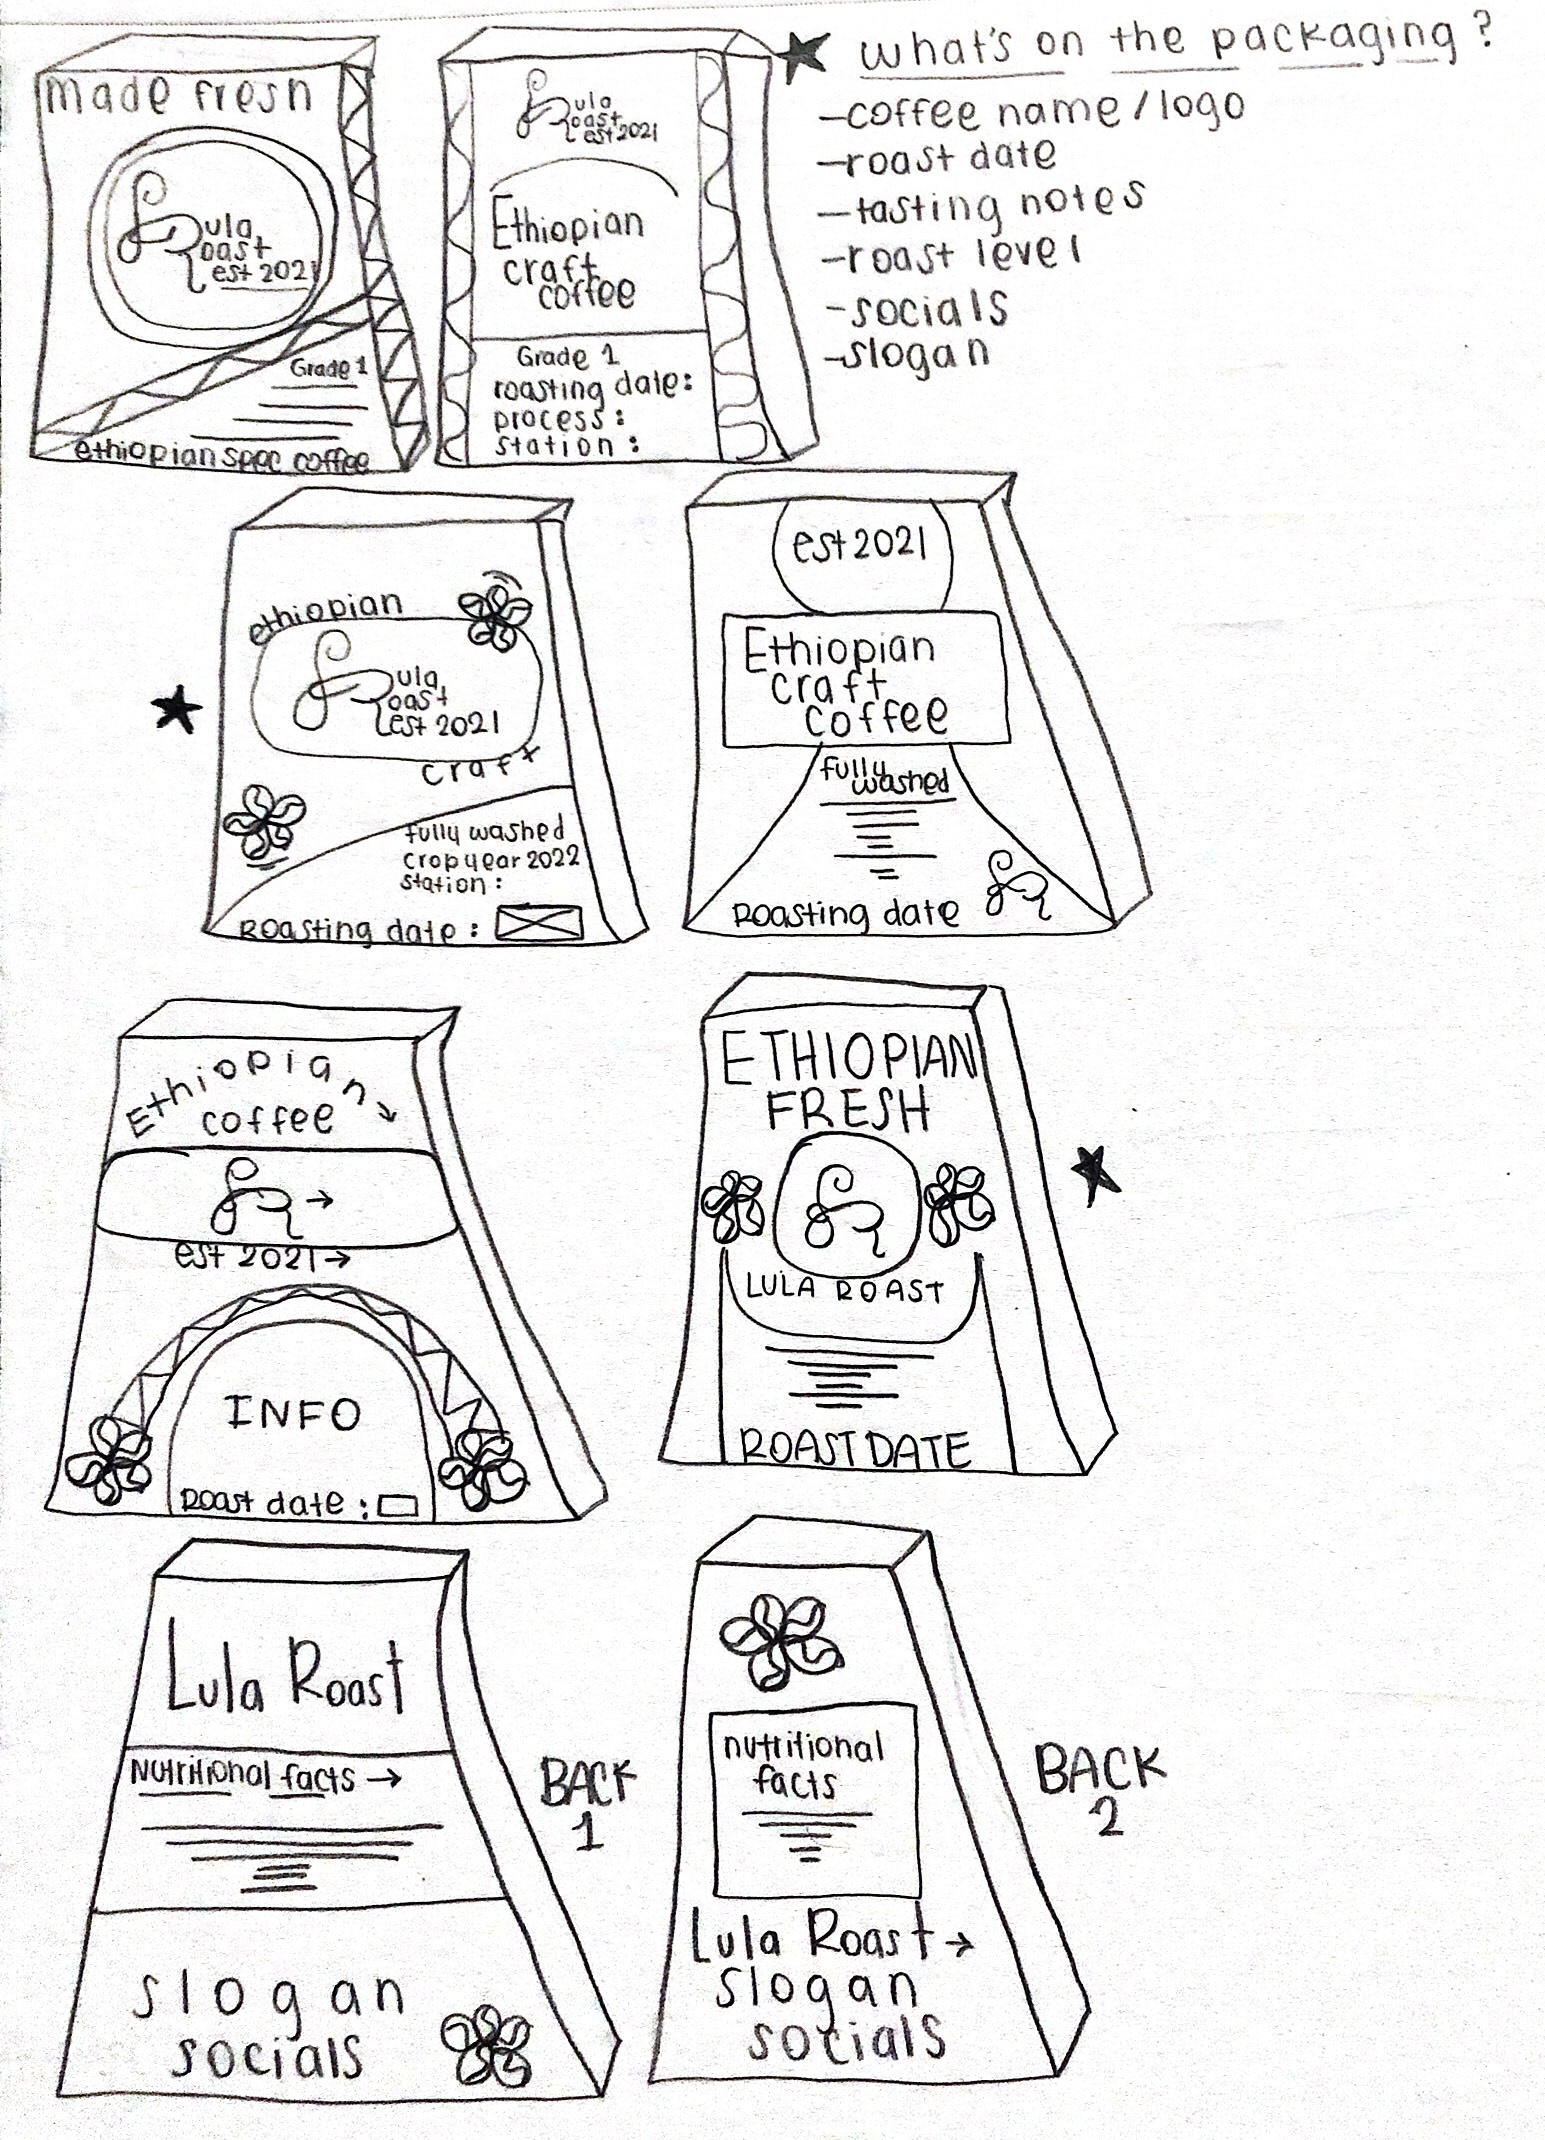 made fresh
Lula
Roast
est 2021
Grade 1
ethiopian spec coffee
Lula
Roast
est 2021
Ethiopian
craft
coffee
Grade 1
roasting date:
process:
station:
what's on the packaging?
-coffee name/logo
-roast date
-tasting notes
-roast level
-socials
-slogan
ethiopian
Lula
Roast
est 2021
craft
fully washed
crop year 2022
station:
Roasting date:
est 2021
Ethiopian
craft
coffee
fully
washed
Roasting date
LR
Ethiopian
coffee
LR →
est 2021→
INFO
Roast date:
ETHIOPIAN
FRESH
LR
LULA ROAST
ROAST DATE
Lula Roast
Nutritional facts →
slogan
socials
BACK
1
nutritional
facts
Lula Roast→
slogan
socials
BACK
2